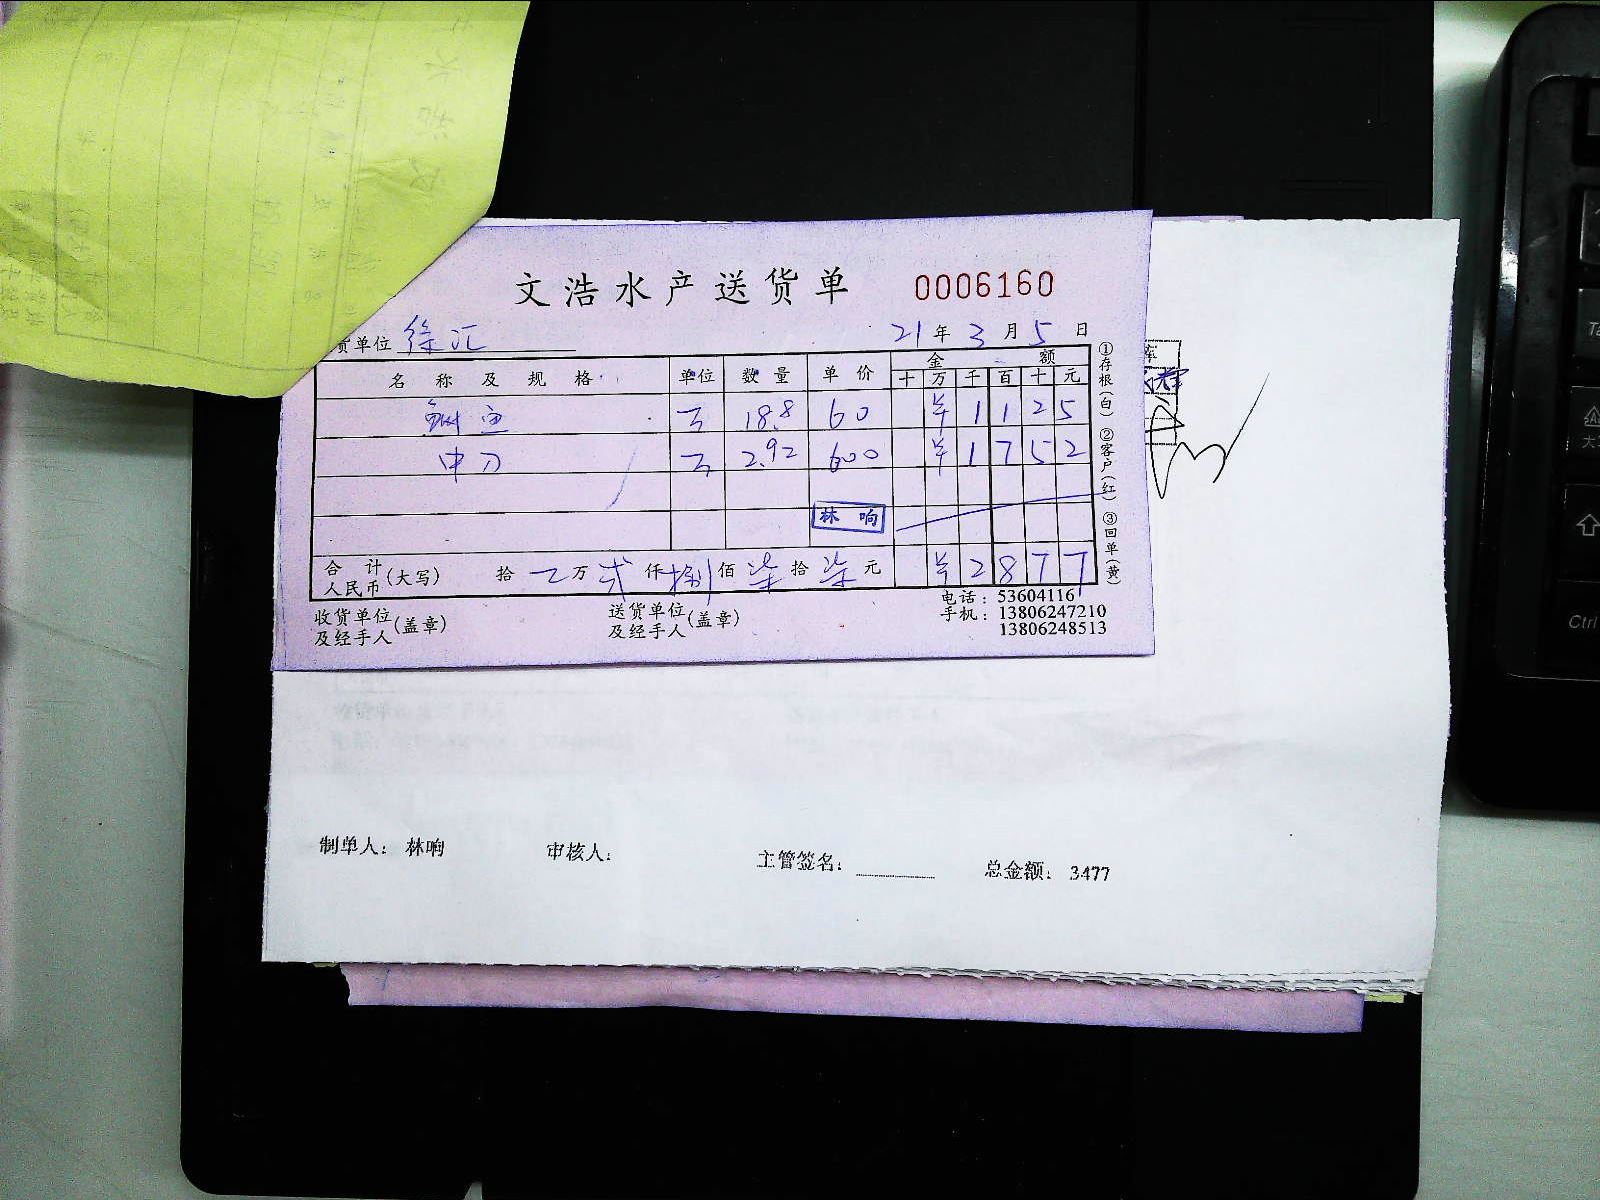 文浩水产送货单 0006160
货单位 徐汇 21年3月5日
名称及规格 单位 数量 单价 金额
十 万 千 百 十 元
鲥鱼 18.8 60 ¥ 1 1 2 5
中刀 2.92 600 ¥ 1 7 5 2
林 响
合计人民币(大写) 拾 万 贰 仟 捌 佰 柒 拾 柒 元 ¥ 2 8 7 7
①存根(白) ②客户(红) ③回单(黄)
收货单位及经手人(盖章) 送货单位及经手人(盖章)
电话：53604116
手机：13806247210
13806248513
制单人：林响 审核人： 主管签名： 总金额：3477
Ctrl